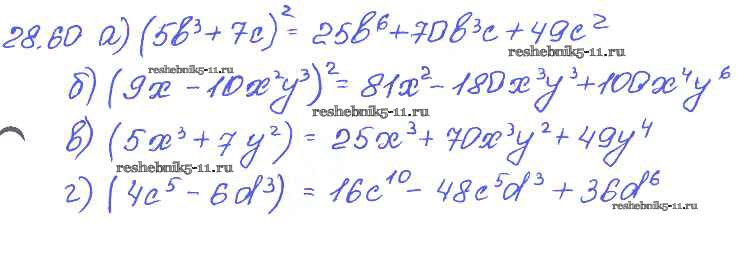 28.60 а) (5b³ + 7c)² = 25b⁶ + 70b³c + 49c²
reshebnik5-11.ru
reshebnik5-11.ru
б) (9x - 10x²y³)² = 81x² - 180x³y³ + 100x⁴y⁶
reshebnik5-11.ru
в) (5x³ + 7y²) = 25x³ + 70x³y² + 49y⁴
reshebnik5-11.ru
г) (4c⁵ - 6d³) = 16c¹⁰ - 48c⁵d³ + 36d⁶
reshebnik5-11.ru